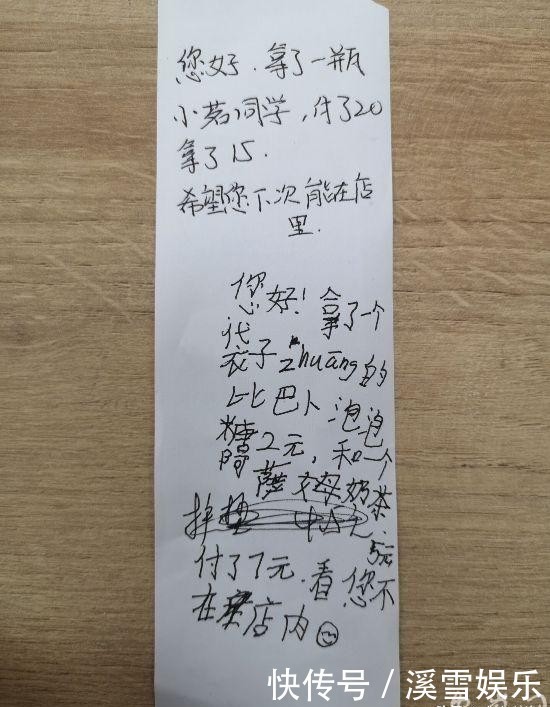 您好．拿了一瓶
小茗同学，付了20
拿了15．
希望您下次能在店
里．
您好！拿了一个
袋子zhuāng的
比巴卜泡泡
糖2元，和一个
奶茶．
5元
付了7元．看您不
在店内
快传号／溪雪娱乐